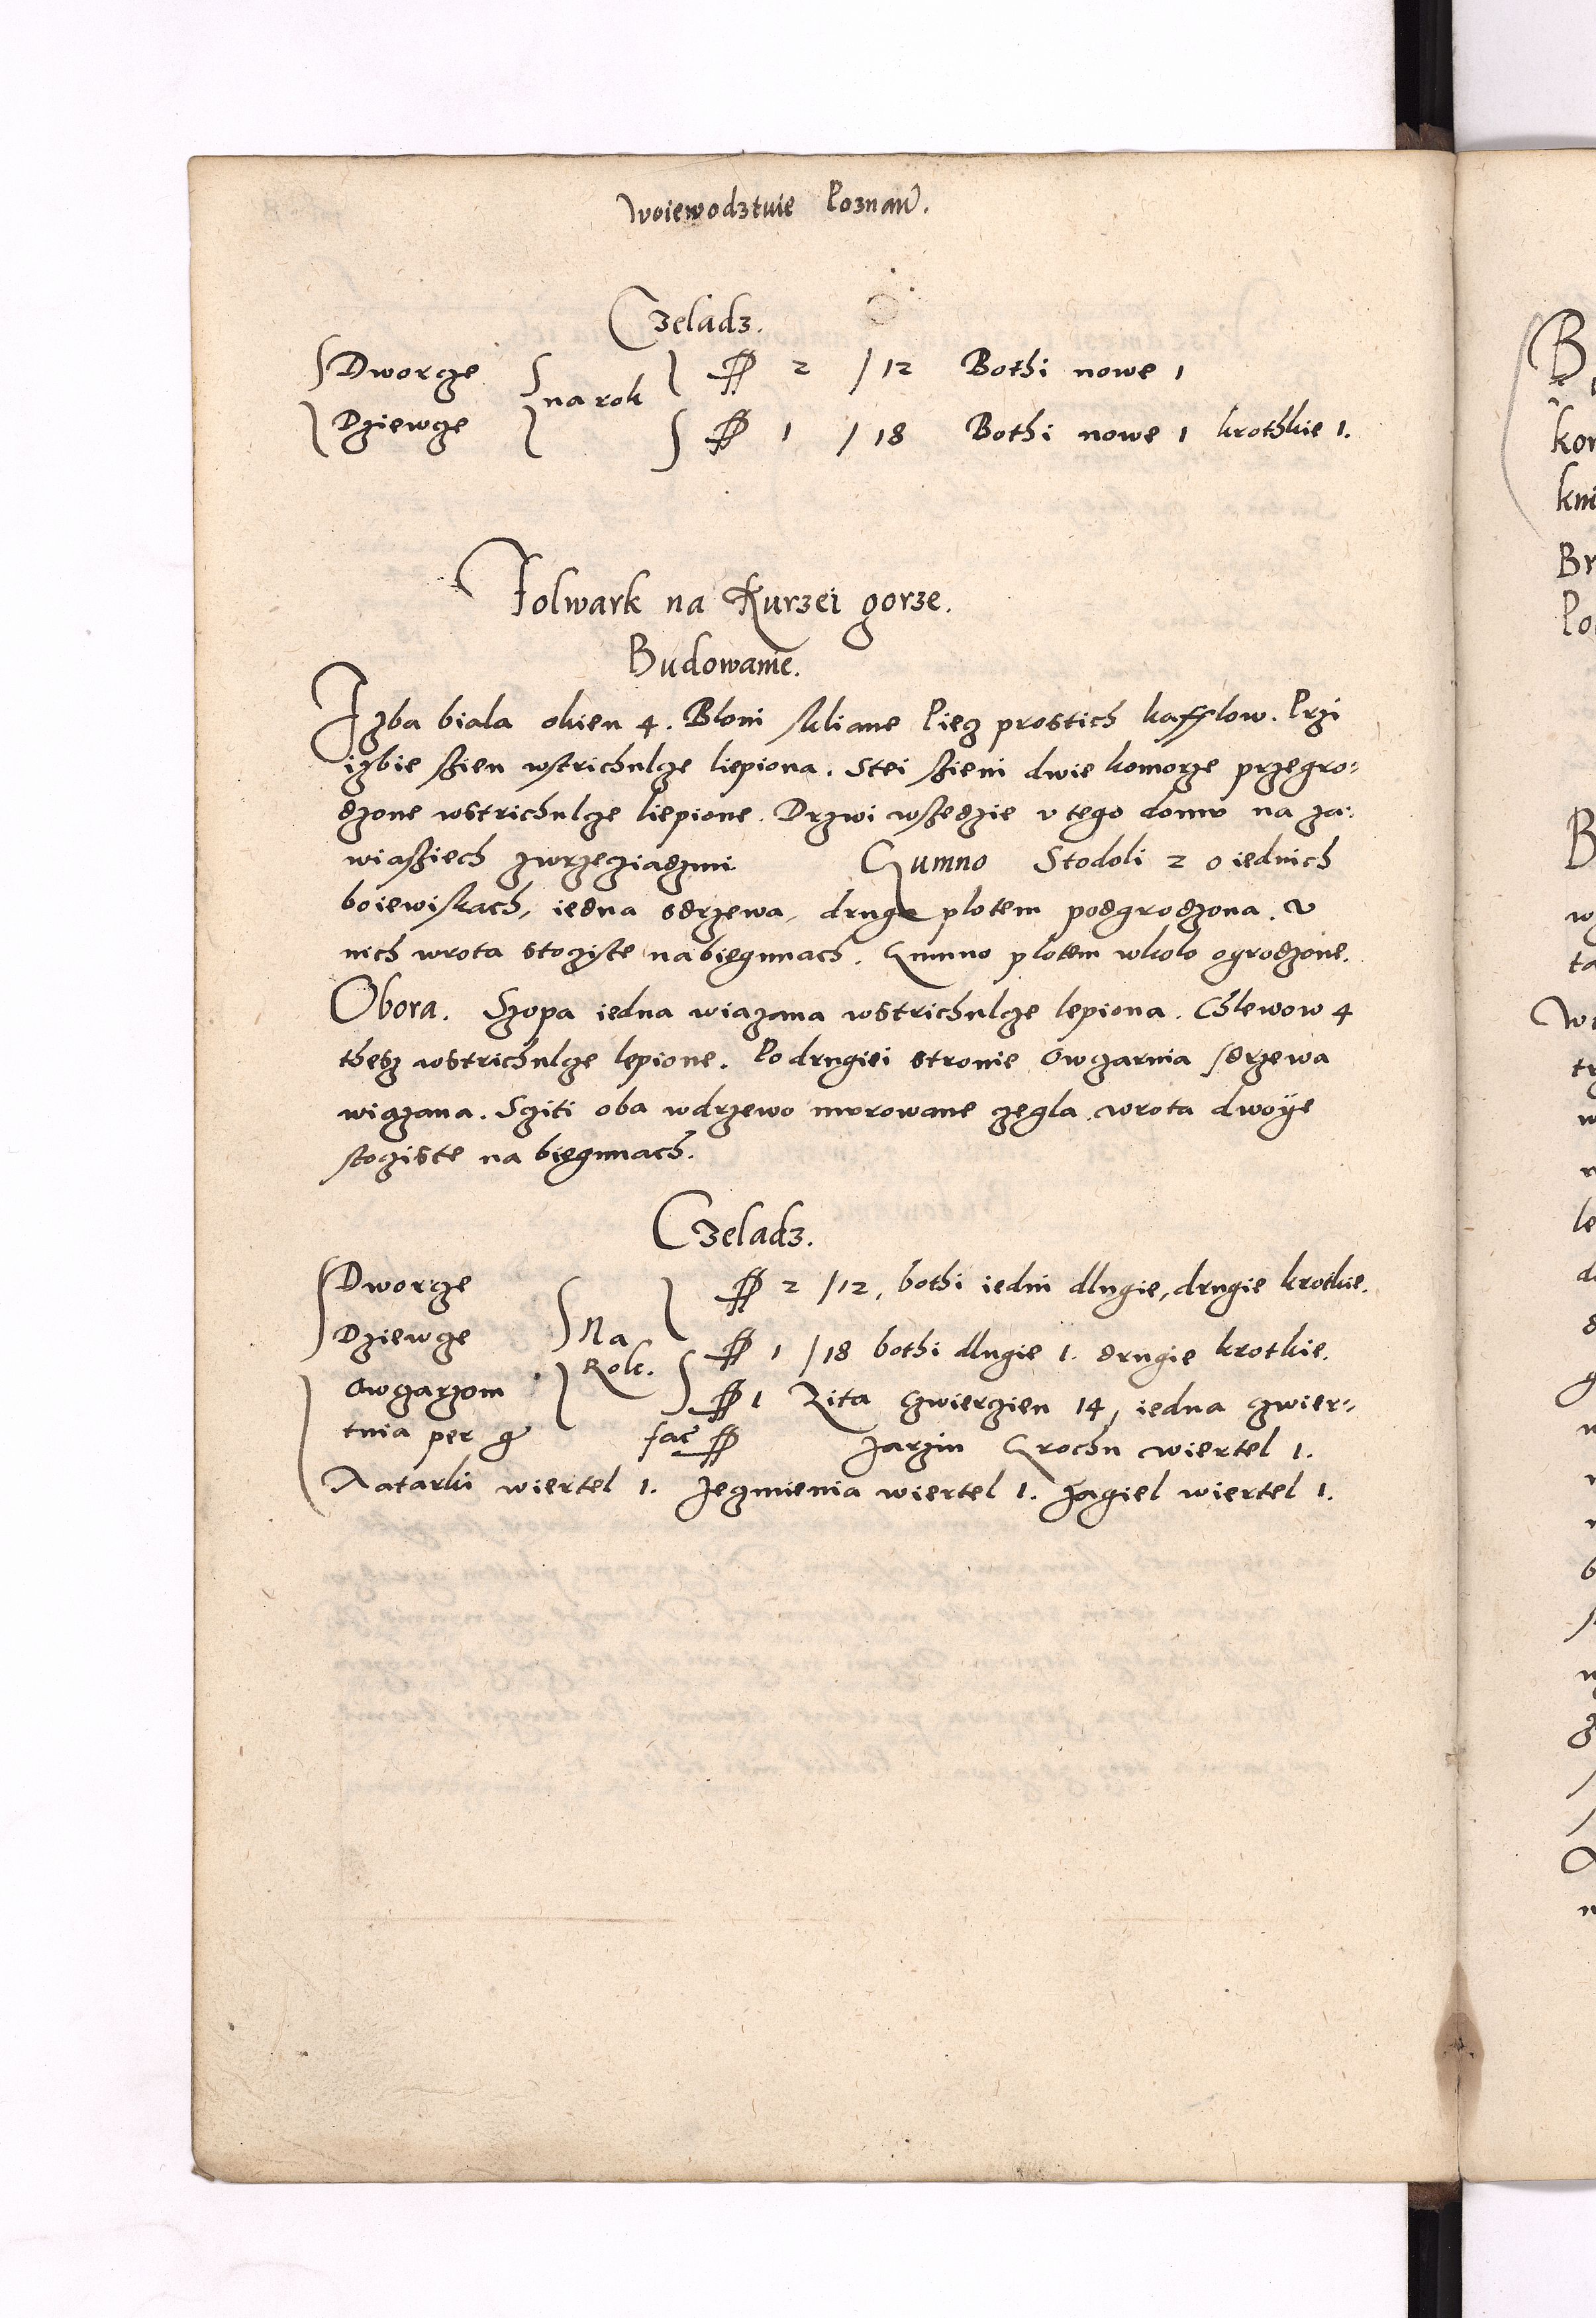 Woiewodztwie Poznań.
Czeladz.
Dworcze na rok 2 / 12 Bothi nowe 1
Dziewcze 1 / 18 Bothi nowe 1 krothkie 1.
Folwark na Kurzei gorze.
Budowanie.
Izba biala okien 4. Bloni skliane Piecz prostich kafflow. Przi
izbie szien wstrichulcze liepiona. Stei szieni dwie komorze przegro-
dzone wstrichulcze liepione. Drzwi wszedzie v tego domu na za-
wiasziech zwrzecziadzmi Gumno Stodoli 2 o iednich
boiewiskach, iedna sdrzewa, druga plotem podgrodzona. V
nich wrota stoziste na biegunach. Gumno plotem wkolo ogrodzone.
Obora. Szopa iedna wiazana wstrichulcze lepiona. Chlewow 4
thesz wstrichulcze lepione. Po drugiei stronie Owczarnia sdrzewa
wiązana. Sziti oba wdrzewo murowane zegla. wrota dwoye
stoziste na biegunach.
Czeladz.
Dworcze Na 2 / 12, bothi iedni dlugie, drugie krotkie.
Dziewcze Rok. 1 / 18 bothi dlugie 1. drugie krotkie.
Owczarzom 1 Zita czwierzien 14, iedna czwier-
tnia per g fac Jarzin Grochu wiertel 1.
Tatarki wiertel 1. Jeczmienia wiertel 1. Jagiel wiertel 1.